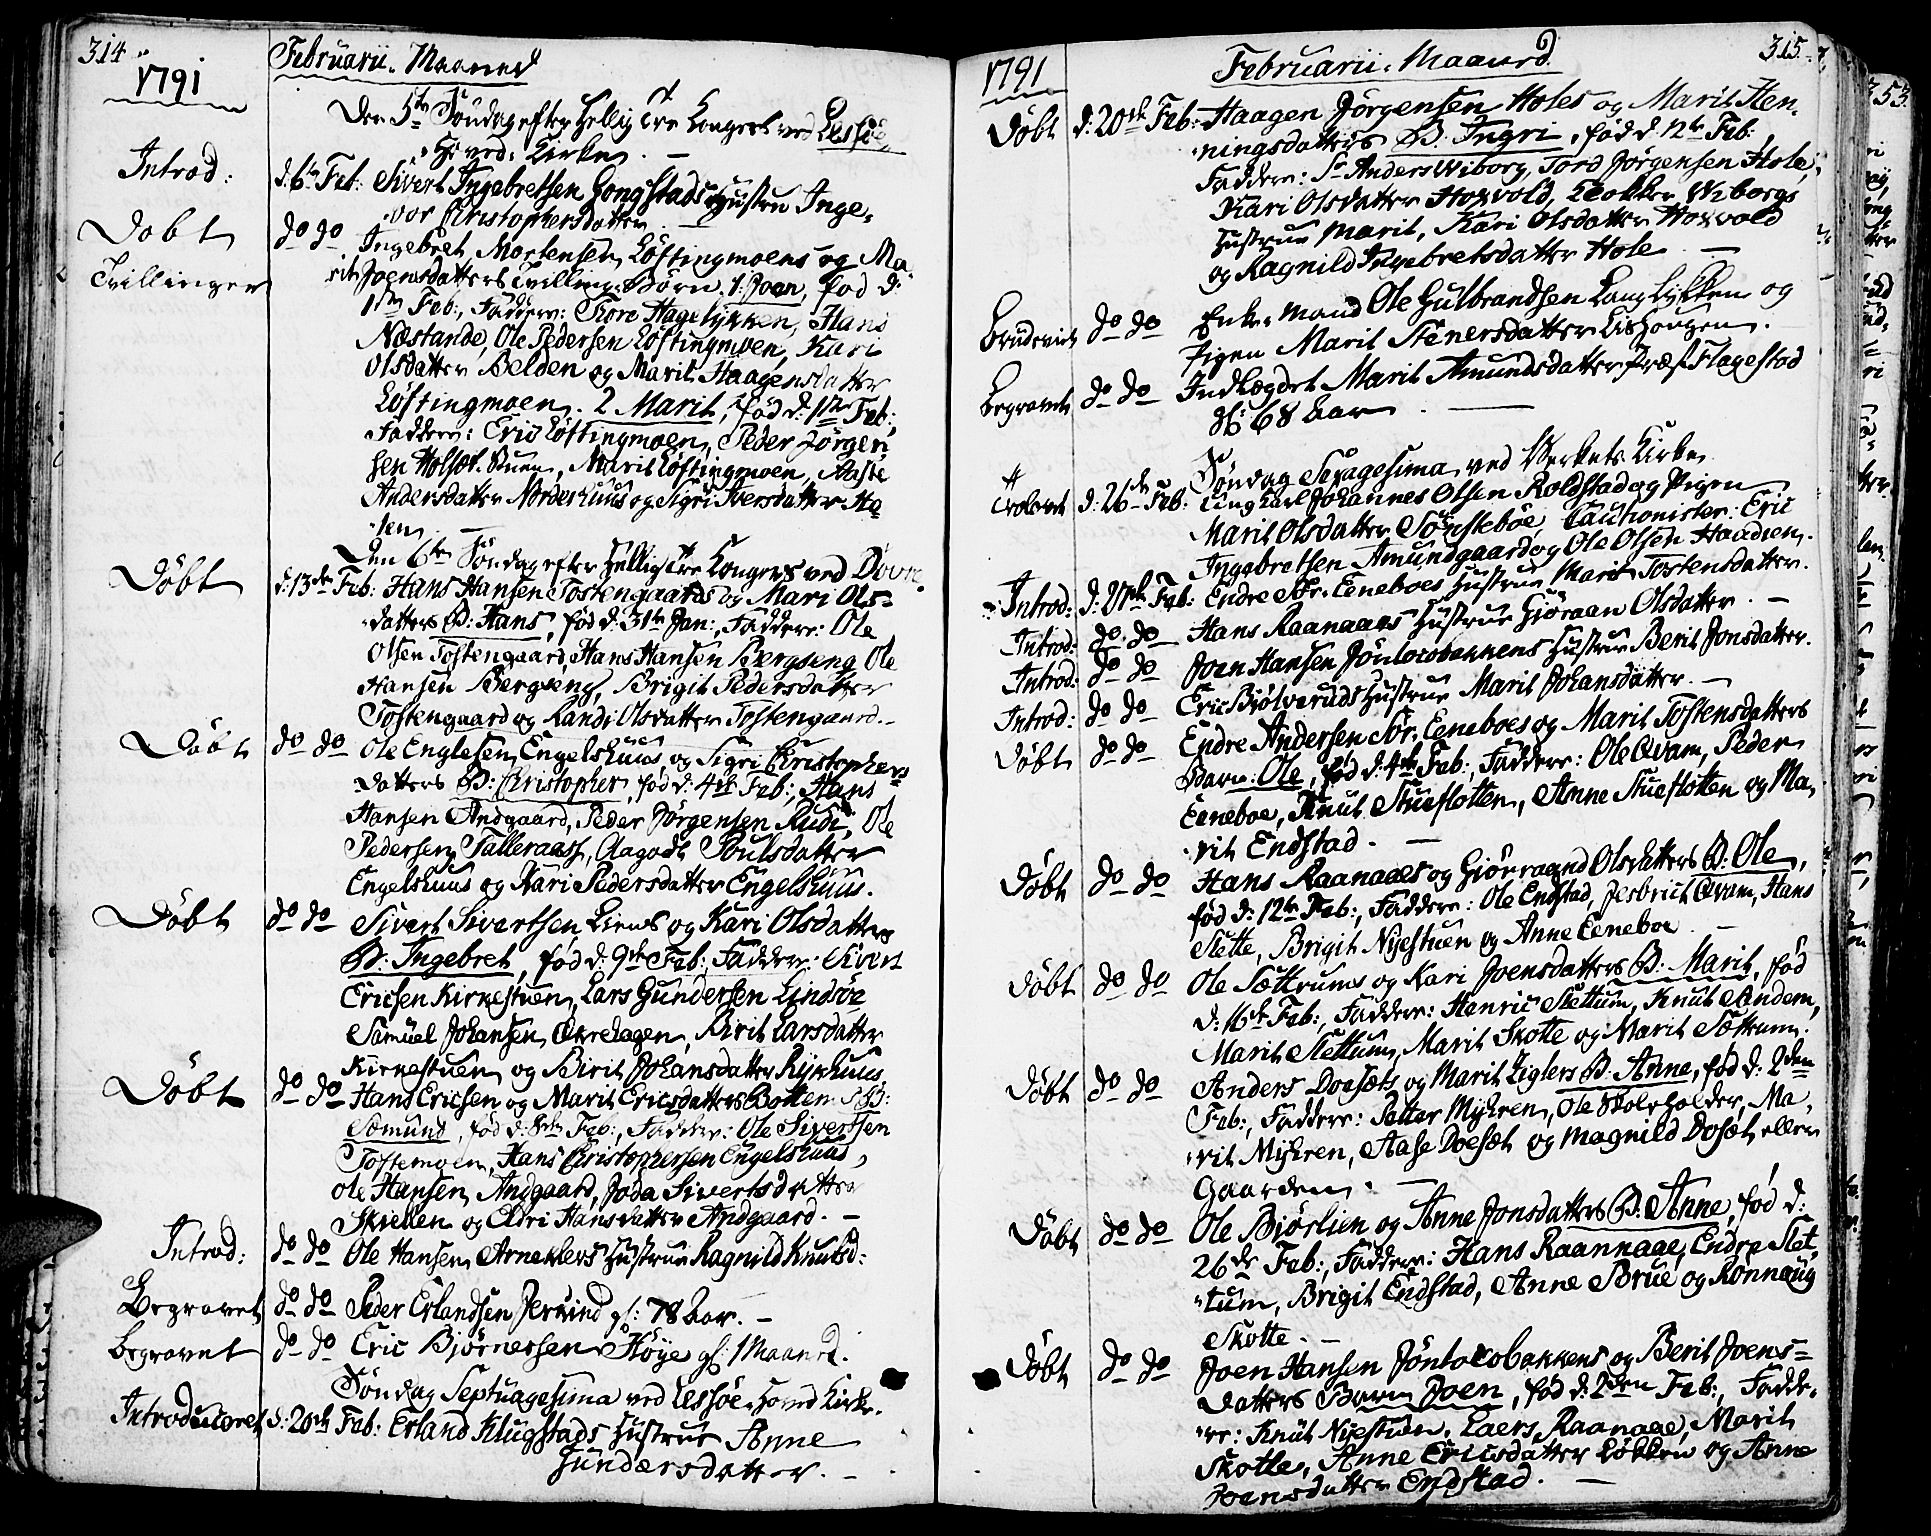 314
1791
Februarii Maaned
Den 5te Søndag efter Hellig Tre Konger ved Lessøe
Hoved: Kirke. —
Introd: d: 6te Feb: Sivert Ingebretsen Gongstads Hustru Inge-
bor Christophersdatter —
Døbt do do Ingebret Mortensen Løftingmoens og Ma-
Tvillinger rit Joensdatters Tvilling-Børn. 1: Joen, fød d:
1ste Feb:, Faddere: Tore Hagelykken, Hans
Næstande, Ole Pedersen Løftingmoen, Kari
Olsdatter Belden og Marit Haagensdatter
Løftingmoen. 2 Marit, fød d: 1ste Feb:,
Faddere: Eric Løftingmoen, Peder Jørgen
sen Holset. Buen, Marit Løftingmoen, Aase
Andersdatter Nordeshuus og Sigri Iversdatter He-
len —
Den 6te Søndag efter Hellig Tre Konger ved Dovre
Døbt d: 13de Feb: Hans Hansen Tostengaards og Mari Ols-
datters B: Hans, fød d: 31te Jan:, Faddere: Ole
Olsen Tostengaard, Hans Hansen Bergseng Ole
Hansen Bergseng, Brigit Pedersdatter
Tostengaard og Randi Olsdatter Tostengaard. —
Døbt do do Ole Englesen Engelshuus og Sigri Christophers
datters B: Christopher, fød d: 4de Feb:, Hans
Hansen Andgaard, Peder Jørgensen Rudi, Ole
Pedersen Talleraas, Aagodt Poulsdatter
Engelshuus og Kari Pedersdatter Engelshuus.
Døbt do do Sivert Sivertsen Liens og Kari Olsdatters
B: Ingebret, fød d: 9de Feb: Faddere: Sivert
Ericsen Kirkestuen, Lars Gundersen Lindsøe
Samuel Johansen Ækrehagen, Birit Larsdatter
Kirkestuen og Birit Johansdatter Rykhuus
Døbt do do Hans Ericsen og Marit Ericsdatters Bottem: s B:
Sæmund, fød d: 8de Feb:, Faddere: Ole Sivertsen
Toftemoen, Hans Christophersen Engelshuus,
Ole Hansen Andgaard, Joda Sivertsdatter
Skielen og Eldri Hansdatter Andgaard. —
Introd: do do Ole Hansen Arneklevs Hustrue Ragnild Knutsd:
Begravet do do Peder Erlandsen Jerkind gl: 78 Aar. —
Begravet do do Eric Bjørnersen Høye gl: 1 Maaned.
Søndag Septuagesima ved Lessøe-Hoved Kirke.
Introduceret d: 20de Feb: Erland Klugstads Hustrue Anne
Gundersdatter. —
315
1791
Februarii Maaned
Døbt d: 20de Feb: Haagen Jørgensen Holes og Marit Hen-
ningsdatters B: Ingri, fød d: 12te Feb:,
Faddere: Sr Anders Wiborg, Tord Jørgensen Hole,
Kari Olsdatter Hoxvold, Klokker Wiborgs
Hustrue Marit, Kari Olsdatter Hoxvold
og Ragnild Ingebretsdatter Hole —
Brudeviet do do Enke-Mand Ole Gulbrandsen Langlykken og
Pigen Marit Stenersdatter Lishougen.
Begravet do do Indlægdet Marit Amundsdatter Præst Flagestad
gl: 68 Aar —
Søndag Sexagesima ved Verkets Kirke
Trolovet d: 26de Feb: Ung Karl Johannes Olsen Roldstad og Pigen
Marit Olsdatter Sønstebøe Cautionister: Eric
Ingebretsen Amundgaard og Ole Olsen Haadsen.
Introd: d: 27de Feb: Endre Sør: Eeneboes Hustrue Marit Tostensdatter.
Introd: do do Hans Raanaaes Hustrue Gjøraan Olsdatter. —
Introd: do do Joen Hansen Jøntocobakkens Hustrue Berit Jonsdatter.
Introd: do do Eric Bjølveruds Hustrue Marit Johansdatter. —
Døbt do do Endre Andersen Sør: Eeneboes og Marit Tostensdatters
Barn: Ole, fød d: 4de Feb:, Faddere: Ole Qvam, Peder
Eeneboe, Knut Stueflotten, Anne Stueflotten og Ma-
rit Endstad. —
Døbt do do Hans Raanaaes og Giørraand Olsdatters B: Ole,
fød d: 12te Feb:, Faddere: Ole Endstad, Jesbrict Qvam, Hans
Slette, Brigit Nyestuen og Anne Eeneboe —
Døbt do do Ole Sættrums og Kari Joensdatters B: Marit, fød
d: 16de Feb:, Faddere: Henric Slettum, Knut Sandem,
Marit Slettum, Marit Skotte og Marit Sættrum.
Døbt do do Anders Doesæts og Marit Ziglers B: Anne, fød d: 2den
Feb:, Faddere: Petter Myhren, Ole Skoleholder, Ma-
rit Myhren, Aase Doesæt og Magnild Dosæt eller
Gaarden. —
Døbt do do Ole Bjørlien og Anne Jonsdatters B: Anne, fød d:
26de Feb:, Faddere: Hans Raannaae, Endre Slet-
tum, Brigit Endstad, Anne Brue og Rønnaug
Skotte. —
Døbt do do Joen Hansen Jøntocobakkens og Berit Joens-
datters Barn Joen, fød d: 2den Feb:, Fadde-
re: Knut Nyestuen, Laers Raanaae, Marit
Skotte, Anne Ericsdatter Løkken og Anne
Joensdatter Endstad. —